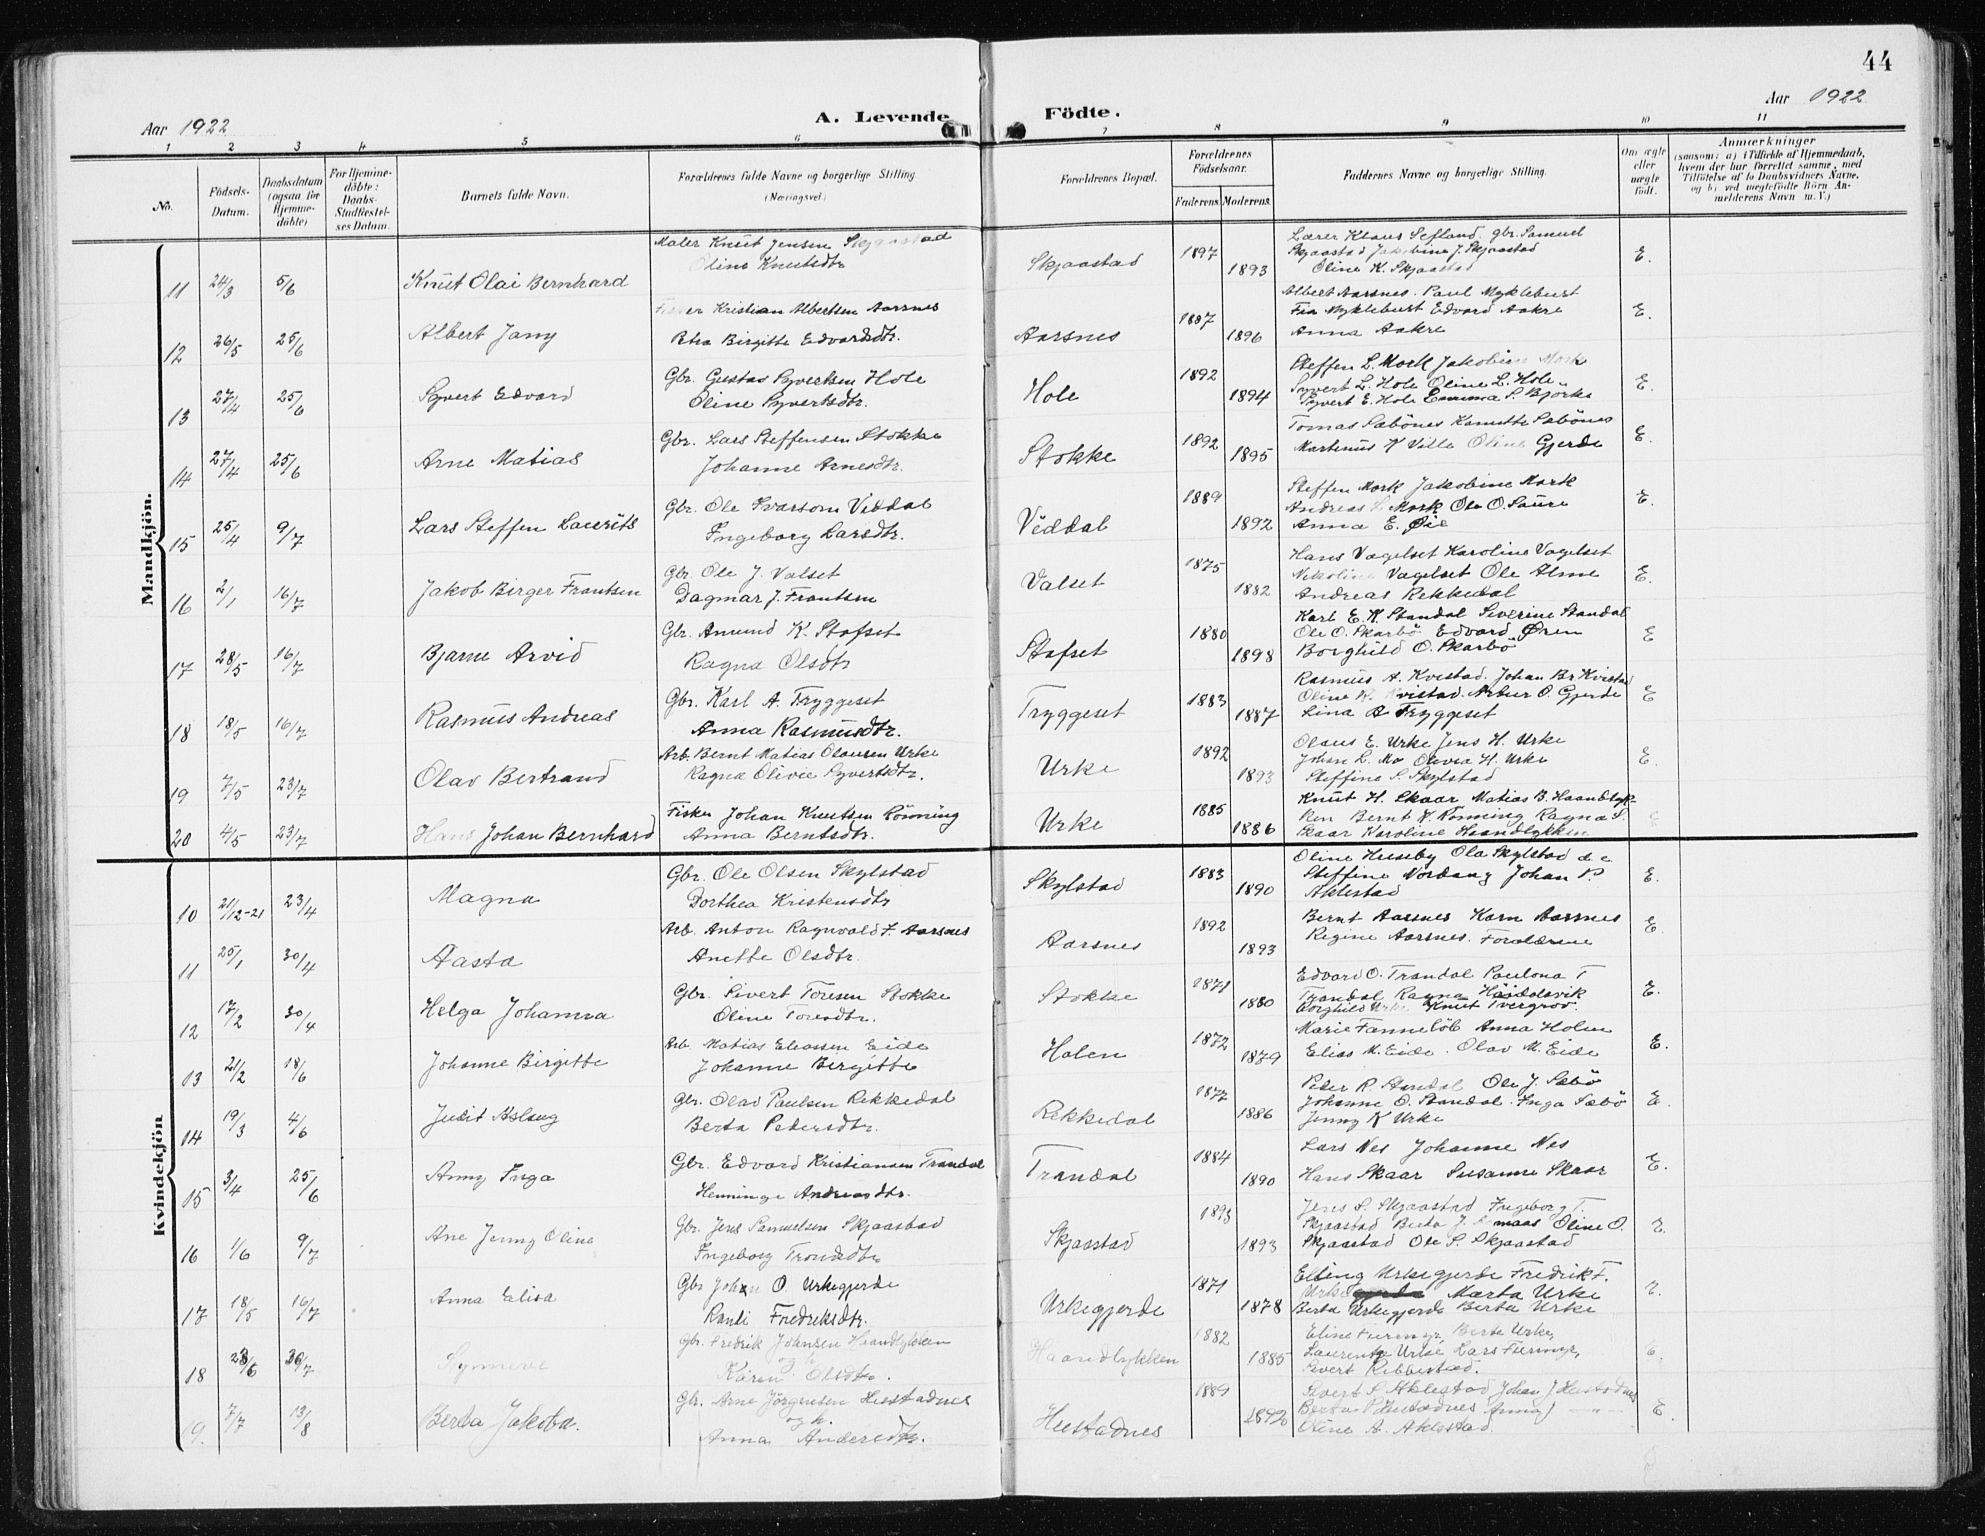 44
Aar 1922
A. Levende
Födte.
Aar 1922
1 2 3 4 5 6 7 8 9 10 11
No.
Födsels-Datum.
Daabsdatum (ogsaa for Hjemme-döbte)
For Hjemme-döbte: Daabs-Stadfæstel-ses Datum.
Barnets fulde Navn.
Forældrenes fulde Navne og borgerlige Stilling (Næringsvei)
Forældrenes Bopæl.
Forældrenes Födselsaar.
Faderens Moderens
Faddernes Navne og borgerlige Stilling.
Om ægte eller uægte födt.
Anmærkninger (saasom: a) i Tilfælde af Hjemmedaab, hvem der har forrettet samme, med Tilföielse af to Daabsvidners Navne, og b) ved uægtefödte Börn An-melderens Navn m.V.)
Mandkjön.
11 24/3 5/6 Knut Olai Bernhard Maler Knut Jensen Skjaastad Skjaastad 1897 Lærer Klaus Sefland. Gbr. Samuel E.
Oline Knutsdtr 1893 Skjaastad Jakobine J. Skjaastad
Oline K. Skjaastad
12 26/5 25/6 Albert Jany Fisker Kristian Albertsen Aarsnes Aarsnes 1887 Albert Aarsnes. Paul Myklebust E.
Petra Birgitte Edvardsdtr. 1896 Fia Myklebust Edvard Aakre
Anna Aakre
13 27/4 25/6 Syvert Edvard Gbr. Gustav Syvertsen Hole Hole 1892 Steffen L. Mork Jakobine Mork E.
Oline Syvertsdtr. 1894 Syvert L. Hole Oline L. Hole
Syvert E. Hole Emma S. Bjørke
14 27/4 25/6 Arne Matias Gbr. Lars Steffensen Stokke Stokke 1892 Tomas Sæbönes Kanutte Sæbönes E.
Johanne Arnesdtr. 1895 Martinus K Ville Oline Gjerde
15 25/4 9/7 Lars Steffen Laurits Gbr. Ole Ivarson Viddal Viddal 1889 Steffen Mork Jakobine Mork E.
Ingeborg Larsdtr. 1892 Andreas L Mork Ole O. Saure
Anna E. Øie
16 2/1 16/7 Jakob Birger Frantsen Gbr. Ole J. Valset Valset 1875 Hans Vagelset Karoline Vagelset E.
Dagmar J. Frantsen 1882 Nikoline Vagelset Ole Alme
Andreas Rekkedal
17 28/5 16/7 Bjarne Arvid Gbr. Amund K. Stafset Stafset 1880 Karl E. K. Standal Severine Standal E
Ragna Olsdtr 1898 Ole O. Skarbö Edvard Øren
Borghild O. Skarbö
18 18/5 16/7 Rasmus Andreas Gbr. Karl A. Tryggeset Tryggeset 1883 Rasmus A. Kvistad. Johan Br Kvistad E
Anna Rasmusdtr. 1887 Oline K. Kvistad. Artur O. Gjerde
Lina A Tryggeset
19 7/5 23/7 Olav Bertrand Arb. Bernt Matias Olausen Urke Urke 1892 Olaus E. Urke Jens H. Urke E.
Ragna Olivie Syvertsdtr. 1893 Johan L. Mo Olivia H. Urke
Steffine S. Skylstad
20 4/5 23/7 Hans Johan Bernhard Fisker Johan Knutsen Rönning Urke 1885 Knut H. Skaar Matias B. Haandlyk- E
Anna Berntsdtr. 1886 ken Bernt K. Rönning Ragna S.
Skaar Karoline Haandlykken
Kvindekjön
10 21/12-21 23/4 Magna Gbr. Ole Olsen Skylstad Skylstad 1883 Oline Huseby Ola Skylstad E.
Dorthea Kristensdtr 1890 Steffine Nordang Johan P.
Aklestad
11 25/1 30/4 Aasta Arb. Anton Ragnvald F. Aarsnes Aarsnes 1892 Bernt Aarsnes Karn Aarsnes E.
Anette Olsdtr. 1893 Regine Aarsnes. Forældrene
12 17/2 30/4 Helga Johanna Gbr. Sivert Toresen Stokke Stokke 1871 Edvard O. Trandal Paulona T E.
Oline Toresdtr. 1880 Trandal Ragna Haddalsvik
Borghild Urke Knut Tvergrov.
13 21/2 18/6 Johanne Birgitte Arb. Matias Eleassen Eide Holen 1872 Marie Fannelöb Anna Holen E.
Johanne Bergitte 1879 Elias M. Eide. Olav M. Eide
14 19/3 4/6 Judit Aslaug Gbr. Olav Paulsen Rekkedal Rekkedal 1877 Peder R. Standal Ole J. Sæbö E.
Berta Pedersdtr. 1886 Johanne O. Standal. Inga Sæbö
Jenny K Urke
15 3/4 25/6 Anny Inga Gbr. Edvard Kristiansen Trandal Trandal 1884 Lars Nes Johanne Nes E.
Henninge Andreasdtr. 1890 Hans Skaar Susanne Skaar
16 1/6 9/7 Ane Jenny Oline Gbr. Jens Samuelsen Skjaastad Skjaastad 1893 Jens S. Skjaastad Ingeborg T. E.
Ingeborg Trondsdtr 1893 Skjaastad Berta J. maas Oline O.
Skjaastad Ole S. Skjaastad
17 18/5 16/7 Anna Elisa Gbr Johan O. Urkegjerde Urkegjerde 1871 Elling Urkegjerde Fredrik F. E.
Ranti Fredriksdtr. 1878 Urke Marta Urke
Berta Urkegjerde Berta Urke
18 28/6 30/7 Synneve Gbr. Fredrik Johnsen Haandlykken Haandlykken 1882 Eline Furmyr, Berte Urke, E.
Karen Olsdtr. 1885 Laurentse Urke Lars Furmyr,
Sivert Ribbestad.
19. 7/7 13/8 Berta Jakoba. Gbr. Arne Jörgensen Hustadnes Hustadnes 1889 Sivert S. Aklestad Johan J Hustadnes E.
og h.
Anna Andersdtr. 1892 Berta P. Hustadnes Anna J - " -
Oline A. Aklestad.